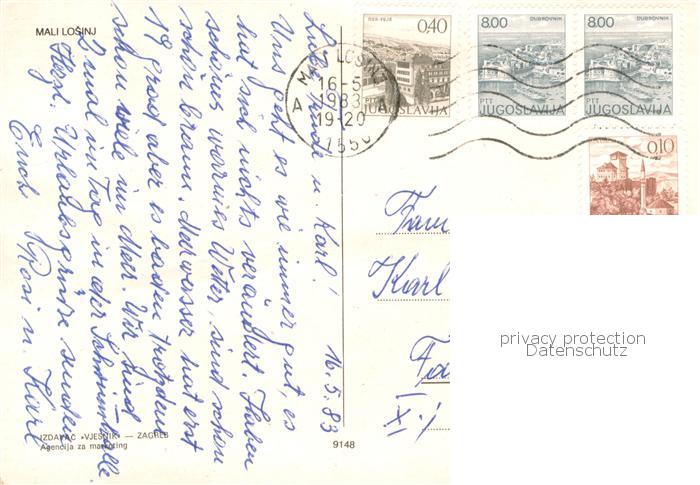 MALI LOŠINJ
16.5.83
Liebe Linde u. Karl!
Uns geht es wie immer gut, es
hat sich nichts verändert. Haben
schönes warmes Wetter, sind schon
schön braun. Meerwasser hat erst
19 grad aber es baden trotzdem
schon viele im Meer. Wir sind
2 mal im Tag in der Schwimmhalle
Herzl. Urlaubsgrüße senden
Euch Rosi u. Karl
IZDAVAČ »VJESNIK« — ZAGREB
Agencija za marketing
9148
0,40
JUGOSLAVIJA
8.00
DUBROVNIK
PTT
JUGOSLAVIJA
8.00
DUBROVNIK
PTT
JUGOSLAVIJA
0,10
MALI LOŠINJ
16-5
1983
19-20
A A
Fam
Karl
privacy protection
Datenschutz